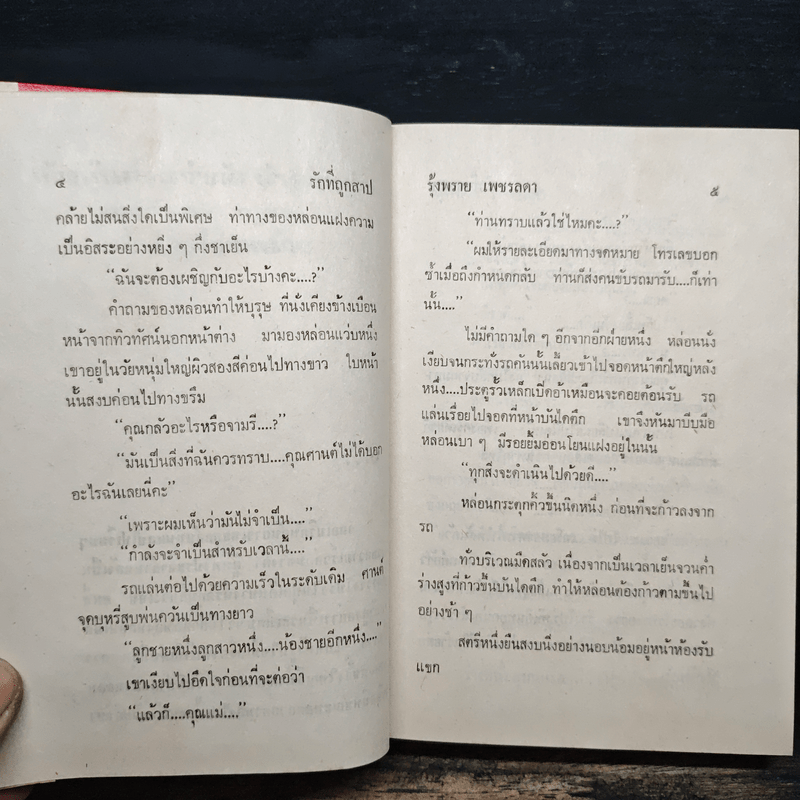 ๔ รักที่ถูกสาป
คล้ายไม่สนสิ่งใดเป็นพิเศษ ท่าทางของหล่อนแฝงความ
เป็นอิสระอย่างหยิ่ง ๆ กึ่งชาเย็น
“ฉันจะต้องเผชิญกับอะไรบ้างคะ....?”
คำถามของหล่อนทำให้บุรุษ ที่นั่งเคียงข้างเบือน
หน้าจากทิวทัศน์นอกหน้าต่าง มามองหล่อนแว่บหนึ่ง
เขาอยู่ในวัยหนุ่มใหญ่ผิวสองสีค่อนไปทางขาว ใบหน้า
นั้นสงบค่อนไปทางขรึม
“คุณกลัวอะไรหรือจามรี....?”
“มันเป็นสิ่งที่ฉันควรทราบ....คุณศานต์ไม่ได้บอก
อะไรฉันเลยนี่คะ”
“เพราะผมเห็นว่ามันไม่จำเป็น....”
“กำลังจะจำเป็นสำหรับเวลานี้....”
รถแล่นต่อไปด้วยความเร็วในระดับเดิม ศานต์
จุดบุหรี่สูบพ่นควันเป็นทางยาว
“ลูกชายหนึ่งลูกสาวหนึ่ง....น้องชายอีกหนึ่ง....”
เขาเงียบไปอึดใจก่อนที่จะต่อว่า
“แล้วก็....คุณแม่....”
รุ้งพราย เพชรลดา ๕
“ท่านทราบแล้วใช่ไหมคะ....?”
“ผมให้รายละเอียดมาทางจดหมาย โทรเลขบอก
ซ้ำเมื่อถึงกำหนดกลับ ท่านก็ส่งคนขับรถมารับ....ก็เท่า
นั้น....”
ไม่มีคำถามใด ๆ อีกจากอีกฝ่ายหนึ่ง หล่อนนั่ง
เงียบจนกระทั่งรถคันนั้นเลี้ยวเข้าไปจอดหน้าตึกใหญ่หลัง
หนึ่ง....ประตูรั้วเหล็กเปิดอ้าเหมือนจะคอยต้อนรับ รถ
แล่นเรื่อยไปจอดที่หน้าบันไดตึก เขาจึงหันมาบีบมือ
หล่อนเบา ๆ มีรอยยิ้มอ่อนโยนแฝงอยู่ในนั้น
“ทุกสิ่งจะดำเนินไปด้วยดี....”
หล่อนกระตุกคิ้วขึ้นนิดหนึ่ง ก่อนที่จะก้าวลงจาก
รถ
ทั่วบริเวณมืดสลัว เนื่องจากเป็นเวลาเย็นจวนค่ำ
ร่างสูงที่ก้าวขึ้นบันไดตึก ทำให้หล่อนต้องก้าวตามขึ้นไป
อย่างช้า ๆ
สตรีหนึ่งยืนสงบนิ่งอย่างนอบน้อมอยู่หน้าห้องรับ
แขก